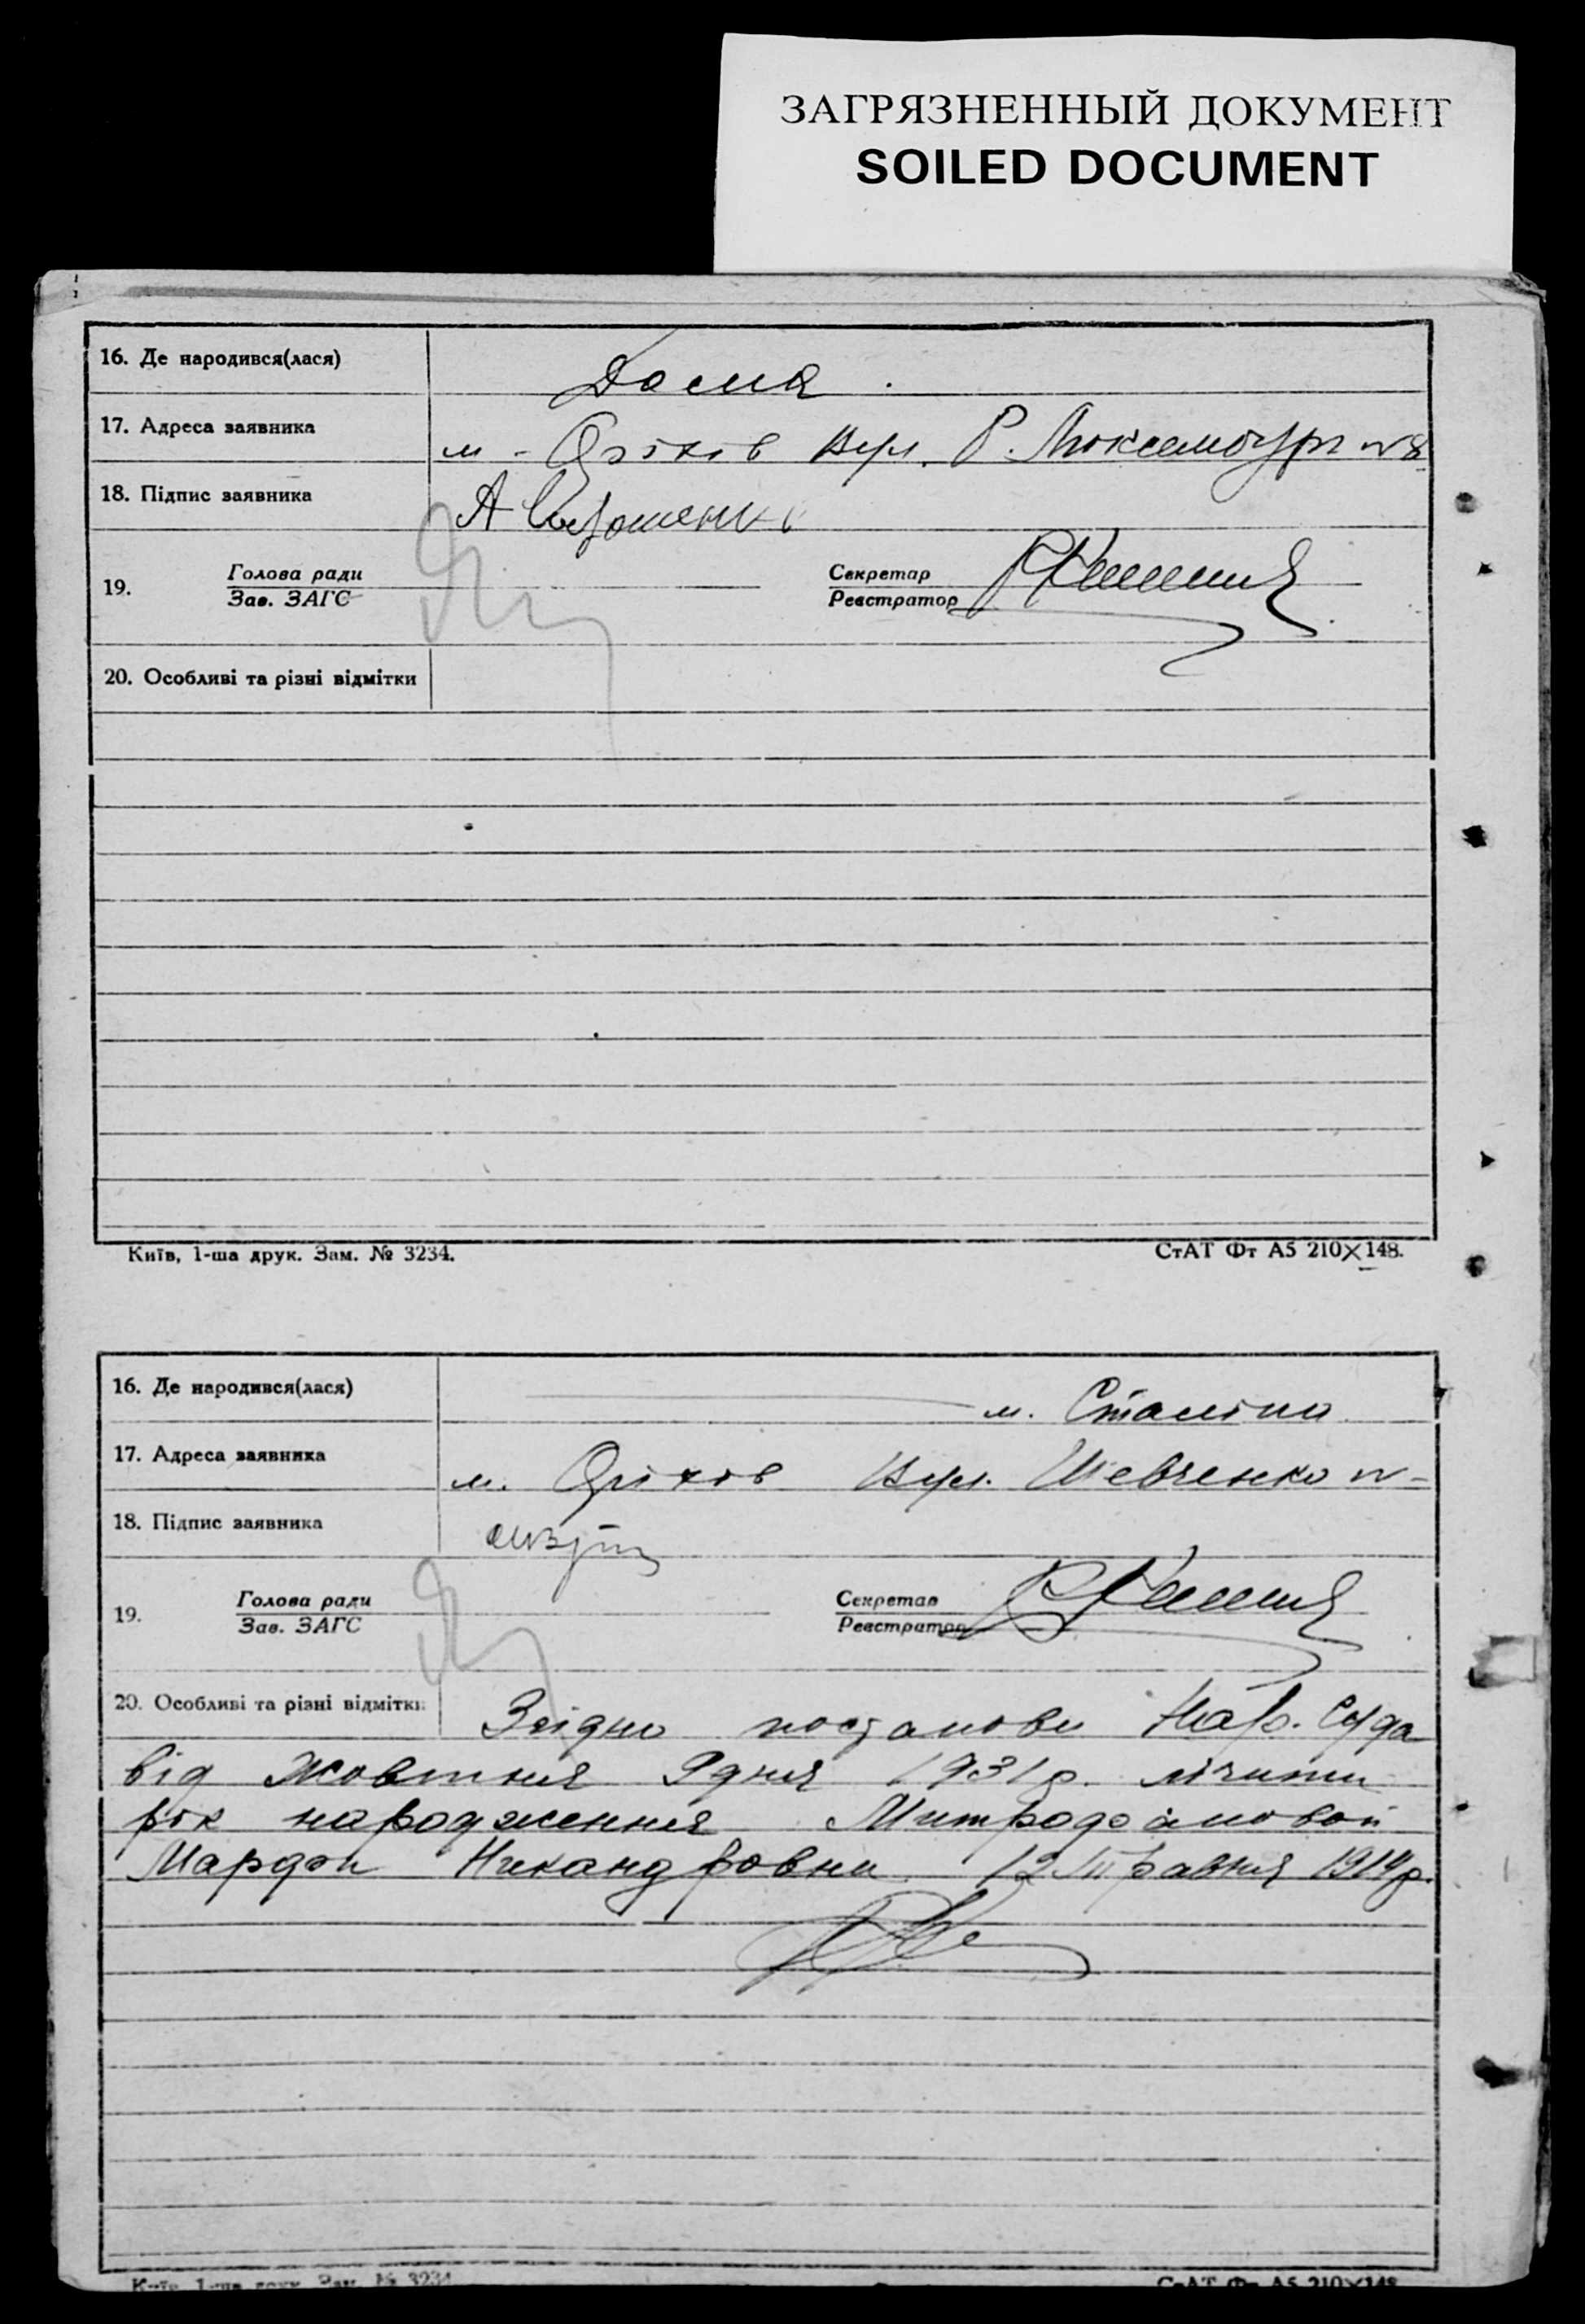 ЗАГРЯЗНЕННЫЙ ДОКУМЕНТ
SOILED DOCUMENT
16. Де народився(лася) Дома.
17. Адреса заявника м - Оріхів Вул. Р. Люксембург №8
18. Підпис заявника А
19. Голова ради Секретар
Зав. ЗАГС Реєстратор
20. Особливі та різні відмітки
Київ, 1-ша друк. Зам. № 3234. СтАТ Фт А5 210×148.
16. Де народився(лася) м. Сталіно
17. Адреса заявника м. Оріхов Вул. Шевченко № -
18. Підпис заявника
19. Голова ради Секретар
Зав. ЗАГС Реєстратор
20. Особливі та різні відмітки Згідно постанови Нар. Суда
від Жовтня 9 дня 1931 р. лічити
рік народження
Никандровни 12 Травня 1914 р.
Київ, 1-ша друк. Зам. № 3234 СтАТ Фт А5 210×148